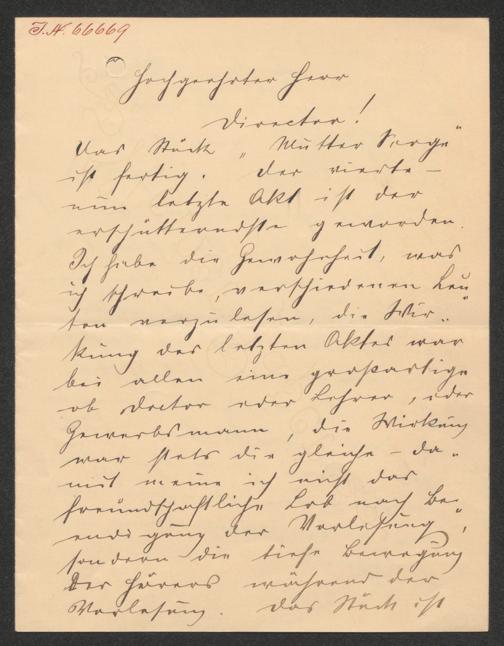 I.N. 66669
Hochgeehrter Herr
Director!
Das Stück „Mutter Sorge"
ist fertig. Der vierte –
nun letzte Akt ist der
erschütterndste geworden.
Ich habe die Gewohnheit, was
ich schreibe, verschiedenen Leu-
ten vorzulesen, die Wir-
kung des letzten Aktes war
bei allen eine großartige
ob Doctor oder Lehrer, oder
Gewerbsmann, die Wirkung
war stets die gleiche – da-
mit meine ich nicht das
freundschaftliche Lob nach Be-
endigung der Vorlesung,
sondern die tiefe Bewegung
des Hörers während der
Vorlesung. Das Stück ist